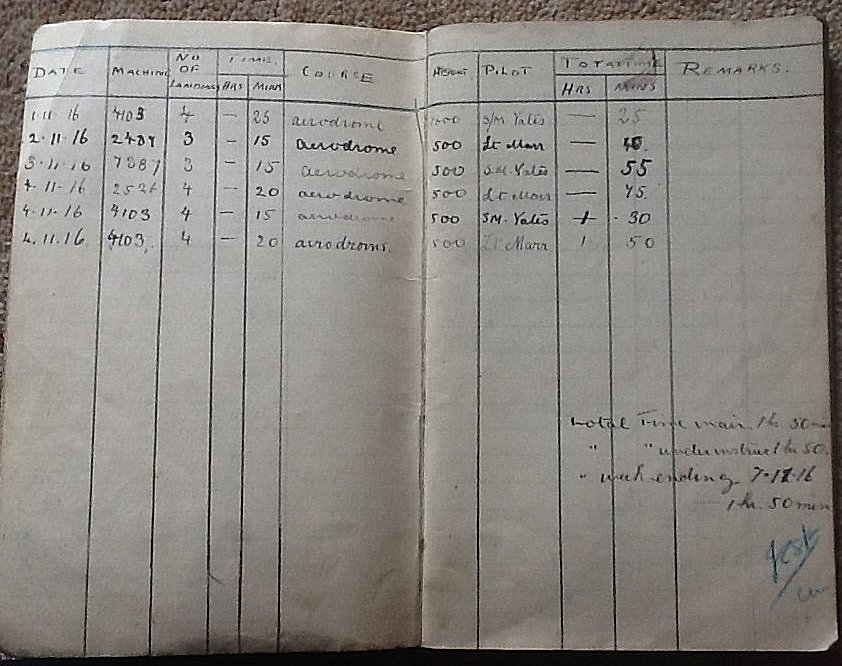 DATE MACHINE NO OF LANDINGS TIME. HRS MINS COURSE HEIGHT PILOT TOTAL TIME HRS MINS REMARKS.
1.11.16 4103 4 — 25 aerodrome S/M Yates — 25
2.11.16 2487 3 — 15 aerodrome 500 Lt Marr — 40.
3.11.16 7387 3 — 15 aerodrome 500 S.M. Yates — 55
4.11.16 2526 4 — 20 aerodrome 500 Lt Marr — 75.
4.11.16 4103 4 — 15 aerodrome 500 S.M. Yates 30
4.11.16. 4103. 4 — 20 aerodrome. 500 Lt Marr 1 50
Total Time main 1 hr 50
" " under instruct 1 hr 50.
" week ending 7.11.16
1 hr. 50 min